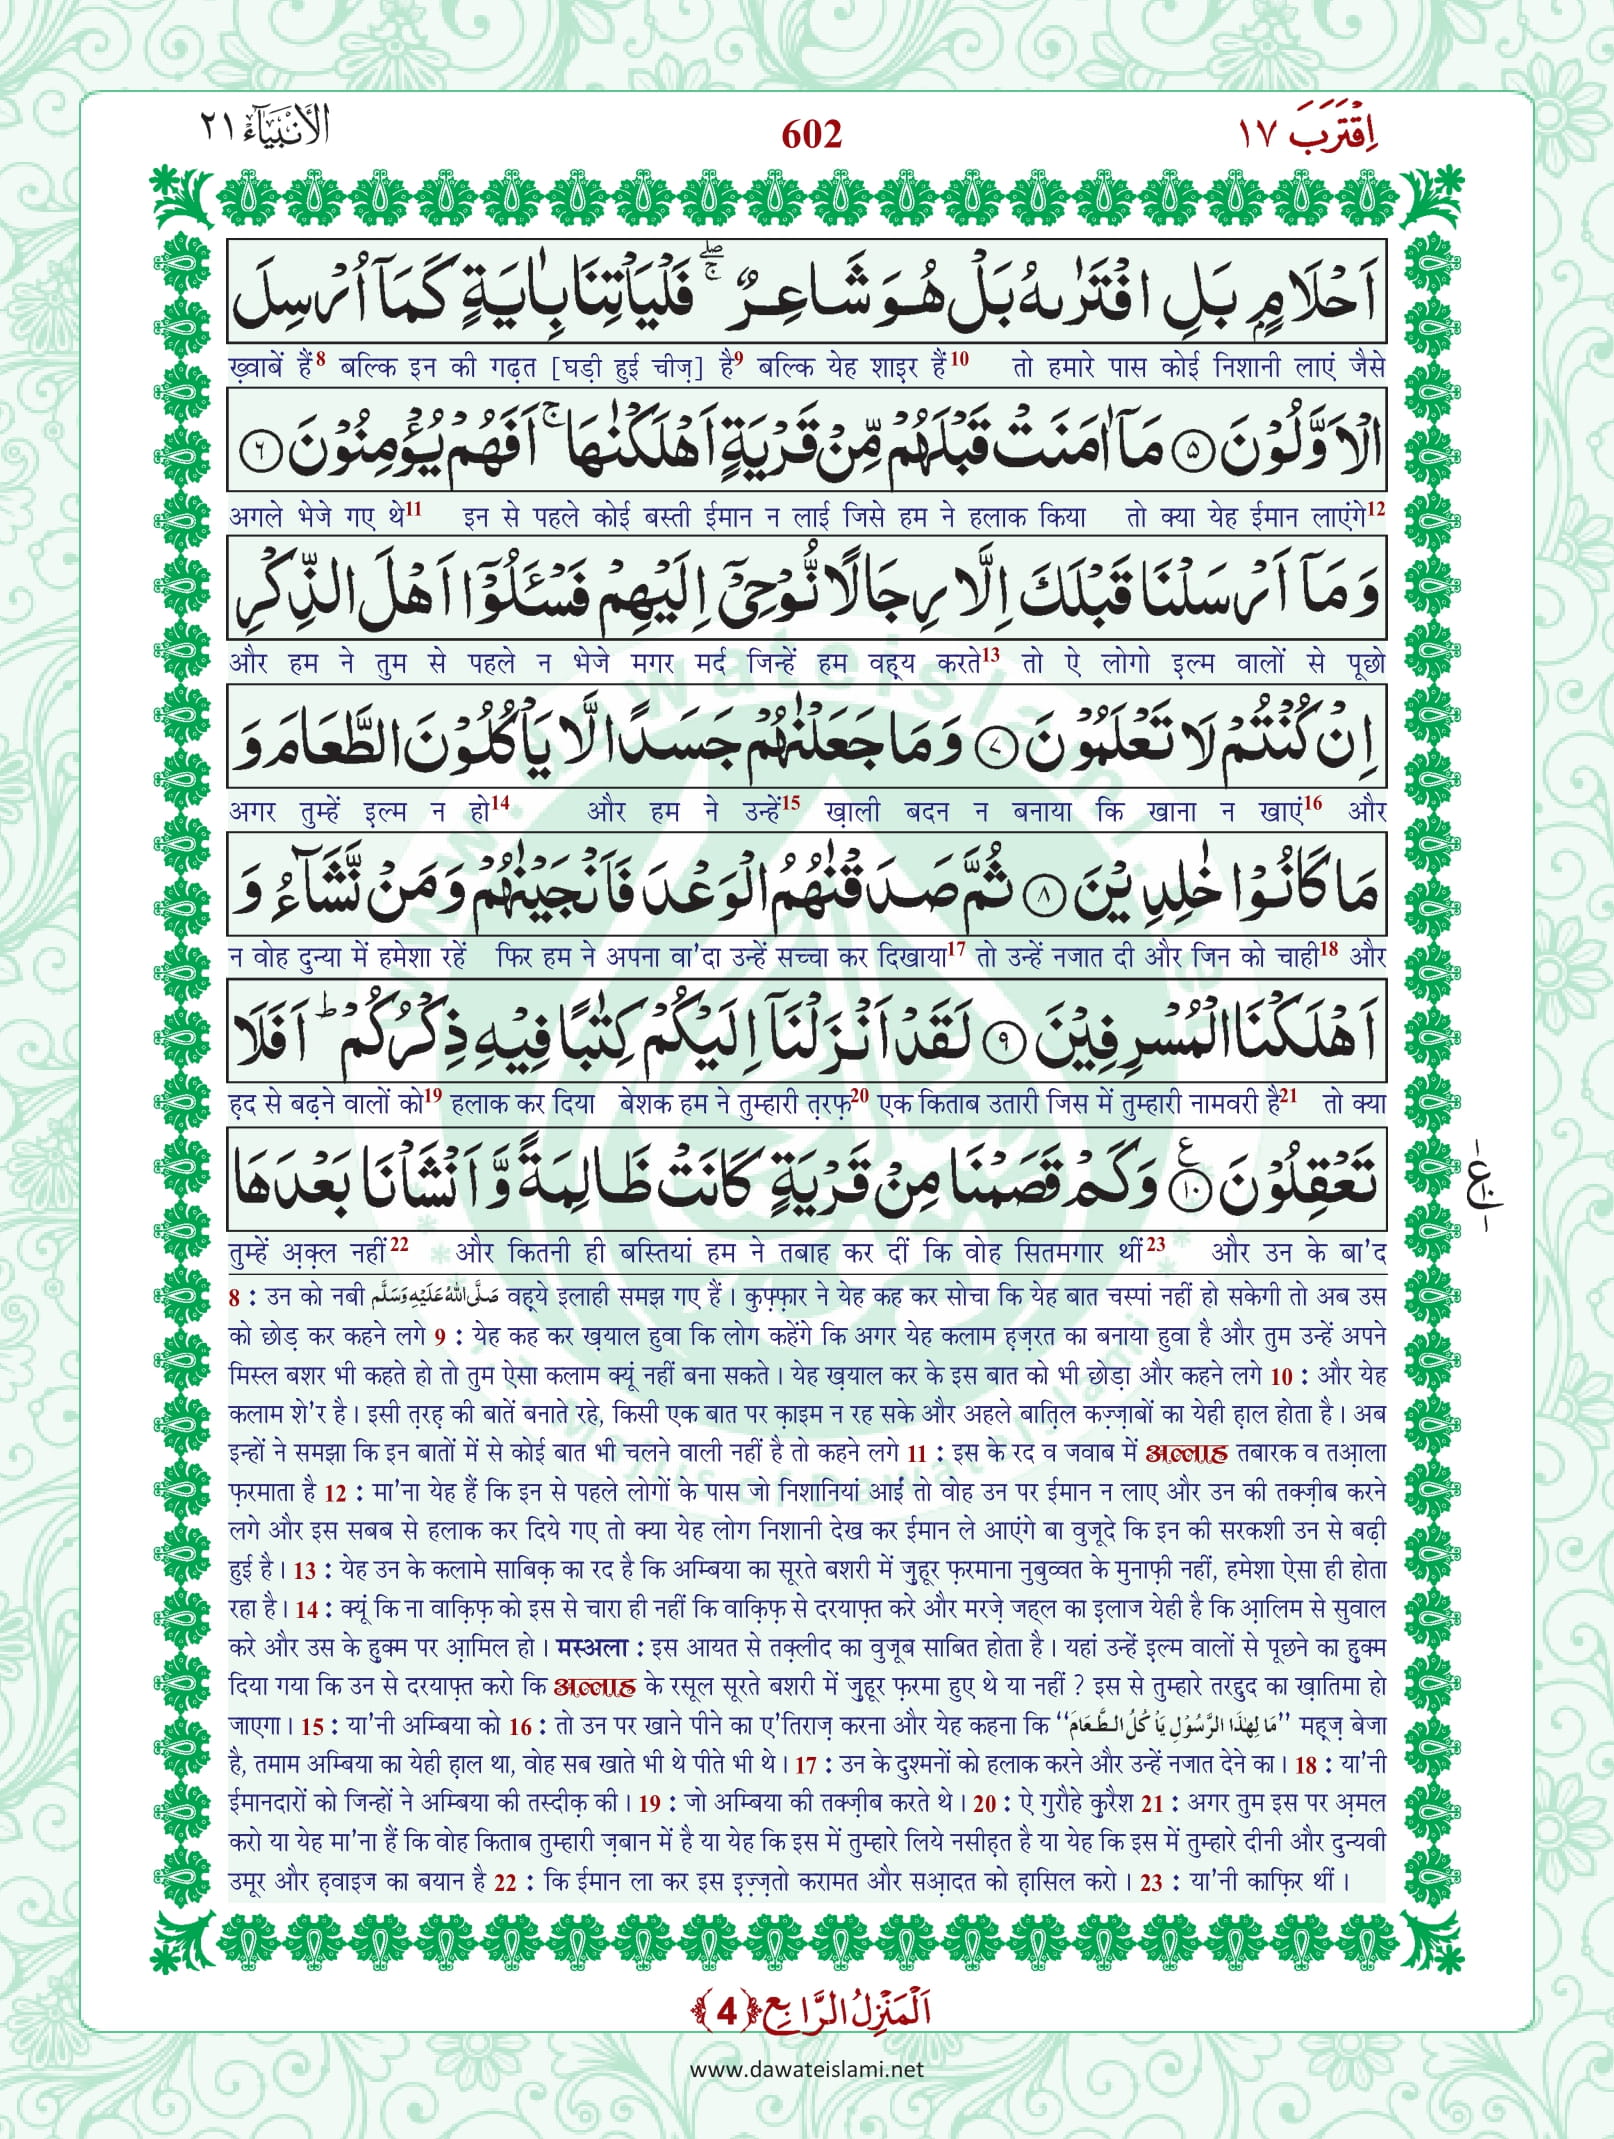 الأنبياء ٢١ 602 اقترب ١٧
اَحْلَامٍۭ بَلِ افْتَرٰىهُ بَلْ هُوَ شَاعِرٌ ۚۖ فَلْیَاْتِنَا بِاٰیَةٍ كَمَاۤ اُرْسِلَ
ख़्वाबें हैं8 बल्कि इन की गढ़त [घड़ी हुई चीज़] है9 बल्कि येह शाइर हैं10 तो हमारे पास कोई निशानी लाएं जैसे
الْاَوَّلُوْنَ ۵ مَاۤ اٰمَنَتْ قَبْلَهُمْ مِّنْ قَرْیَةٍ اَهْلَكْنٰهَا ۚ اَفَهُمْ یُؤْمِنُوْنَ ۶
अगले भेजे गए थे11 इन से पहले कोई बस्ती ईमान न लाई जिसे हम ने हलाक किया तो क्या येह ईमान लाएंगे12
وَ مَاۤ اَرْسَلْنَا قَبْلَكَ اِلَّا رِجَالًا نُّوْحِیْۤ اِلَیْهِمْ فَسْـَٔلُوْۤا اَهْلَ الذِّكْرِ
और हम ने तुम से पहले न भेजे मगर मर्द जिन्हें हम वह़्य करते13 तो ऐ लोगो इल्म वालों से पूछो
اِنْ كُنْتُمْ لَا تَعْلَمُوْنَ ۷ وَ مَا جَعَلْنٰهُمْ جَسَدًا لَّا یَاْكُلُوْنَ الطَّعَامَ وَ
अगर तुम्हें इल्म न हो14 और हम ने उन्हें15 ख़ाली बदन न बनाया कि खाना न खाएं16 और
مَا كَانُوْا خٰلِدِیْنَ ۸ ثُمَّ صَدَقْنٰهُمُ الْوَعْدَ فَاَنْجَیْنٰهُمْ وَ مَنْ نَّشَآءُ وَ
न वोह दुन्या में हमेशा रहें फिर हम ने अपना वा'दा उन्हें सच्चा कर दिखाया17 तो उन्हें नजात दी और जिन को चाही18 और
اَهْلَكْنَا الْمُسْرِفِیْنَ ۹ لَقَدْ اَنْزَلْنَاۤ اِلَیْكُمْ كِتٰبًا فِیْهِ ذِكْرُكُمْ ؕ اَفَلَا
ह़द से बढ़ने वालों को19 हलाक कर दिया बेशक हम ने तुम्हारी त़रफ़20 एक किताब उतारी जिस में तुम्हारी नामवरी है21 तो क्या
تَعْقِلُوْنَ ۱۰ ع وَ كَمْ قَصَمْنَا مِنْ قَرْیَةٍ كَانَتْ ظَالِمَةً وَّ اَنْشَاْنَا بَعْدَهَا
तुम्हें अ़क़्ल नहीं22 और कितनी ही बस्तियां हम ने तबाह कर दीं कि वोह सितमगार थीं23 और उन के बा'द
8 : उन को नबी صَلَّى اللّٰهُ عَلَيْهِ وَسَلَّم वह़्ये इलाही समझ गए हैं। कुफ़्फ़ार ने येह कह कर सोचा कि येह बात चस्पां नहीं हो सकेगी तो अब उस
को छोड़ कर कहने लगे 9 : येह कह कर ख़याल हुवा कि लोग कहेंगे कि अगर येह कलाम ह़ज़रत का बनाया हुवा है और तुम उन्हें अपने
मिस्ल बशर भी कहते हो तो तुम ऐसा कलाम क्यूं नहीं बना सकते। येह ख़याल कर के इस बात को भी छोड़ा और कहने लगे 10 : और येह
कलाम शे'र है। इसी त़रह़ की बातें बनाते रहे, किसी एक बात पर क़ाइम न रह सके और अहले बात़िल कज़्ज़ाबों का येही ह़ाल होता है। अब
इन्हों ने समझा कि इन बातों में से कोई बात भी चलने वाली नहीं है तो कहने लगे 11 : इस के रद व जवाब में अल्लाह तबारक व तआ़ला
फ़रमाता है 12 : मा'ना येह हैं कि इन से पहले लोगों के पास जो निशानियां आईं तो वोह उन पर ईमान न लाए और उन की तक्ज़ीब करने
लगे और इस सबब से हलाक कर दिये गए तो क्या येह लोग निशानी देख कर ईमान ले आएंगे बा वुजूदे कि इन की सरकशी उन से बढ़ी
हुई है। 13 : येह उन के कलामे साबिक़ का रद है कि अम्बिया का सूरते बशरी में ज़ुहूर फ़रमाना नुबुव्वत के मुनाफ़ी नहीं, हमेशा ऐसा ही होता
रहा है। 14 : क्यूं कि ना वाक़िफ़ को इस से चारा ही नहीं कि वाक़िफ़ से दरयाफ़्त करे और मरज़े जह्ल का इलाज येही है कि आ़लिम से सुवाल
करे और उस के हुक्म पर आ़मिल हो। मस्अला : इस आयत से तक़्लीद का वुजूब साबित होता है। यहां उन्हें इल्म वालों से पूछने का हुक्म
दिया गया कि उन से दरयाफ़्त करो कि अल्लाह के रसूल सूरते बशरी में ज़ुहूर फ़रमा हुए थे या नहीं ? इस से तुम्हारे तरद्दुद का ख़ातिमा हो
जाएगा। 15 : या'नी अम्बिया को 16 : तो उन पर खाने पीने का ए'तिराज़ करना और येह कहना कि ‘‘مَا لِهٰذَا الرَّسُوْلِ يَاْكُلُ الطَّعَامَ’’ मह़ज़ बेजा
है, तमाम अम्बिया का येही ह़ाल था, वोह सब खाते भी थे पीते भी थे। 17 : उन के दुश्मनों को हलाक करने और उन्हें नजात देने का। 18 : या'नी
ईमानदारों को जिन्हों ने अम्बिया की तस्दीक़ की। 19 : जो अम्बिया की तक्ज़ीब करते थे। 20 : ऐ गुरौहे क़ुरैश 21 : अगर तुम इस पर अ़मल
करो या येह मा'ना हैं कि वोह किताब तुम्हारी ज़बान में है या येह कि इस में तुम्हारे लिये नसीह़त है या येह कि इस में तुम्हारे दीनी और दुन्यवी
उमूर और ह़वाइज का बयान है 22 : कि ईमान ला कर इस इ़ज़्ज़तो करामत और सआ़दत को ह़ासिल करो। 23 : या'नी काफ़िर थीं।
اَلْمَنْزِلُ الرَّابِع ﴿4﴾
www.dawateislami.net